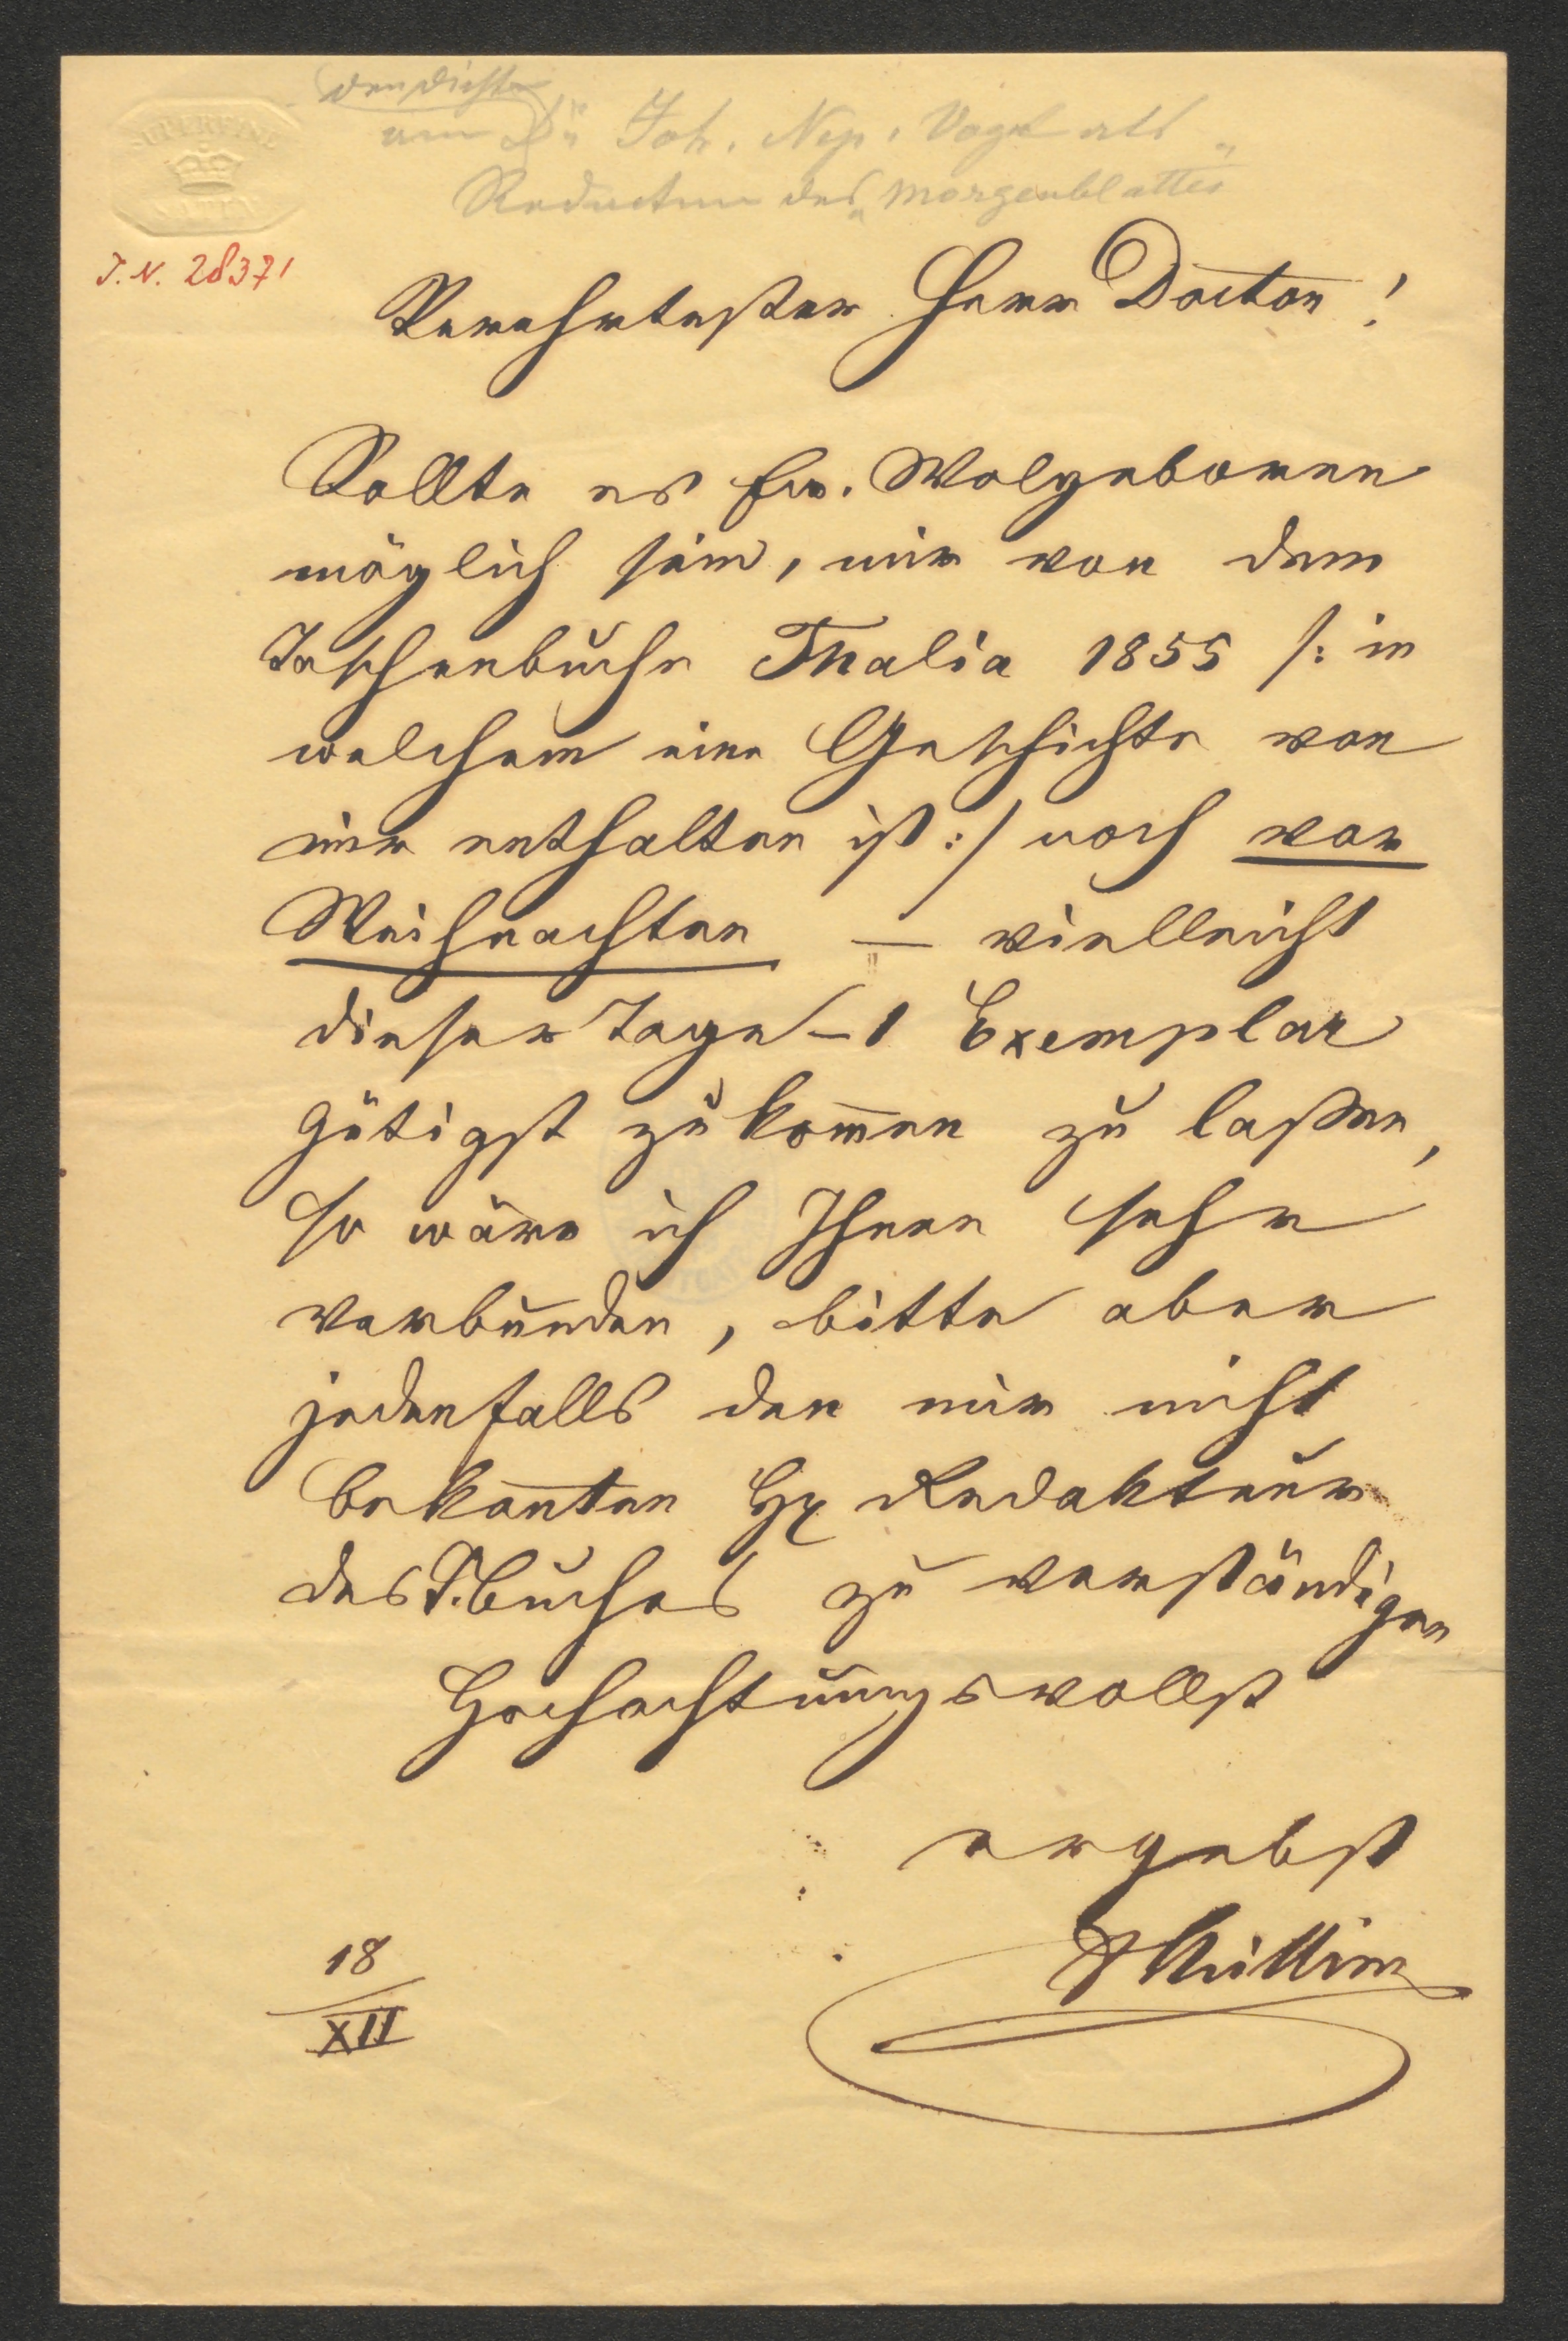 den Dichter
an Dr Joh. Nep. Vogl als
Redacteur des "Morgenblattes"
SUPERFINE
J.N. 28371
Verehrtester Herr Doctor!
Sollte es Ew. Wolgeboren
möglich sein, mir von dem
Taschenbuche Thalia 1855 /: in
welchem eine Geschichte von
mir enthalten ist :/ noch vor
Weihnachten — vielleicht
dieser Tage – 1 Exemplar
gütigst zukom̅en zu laßen,
so wäre ich Ihnen sehr
verbunden, bitte aber
jedenfalls den mir nicht
bekan̅ten Hr Redakteur
des T.buches zu verständigen
Hochachtungsvollst
ergebst
18
XII